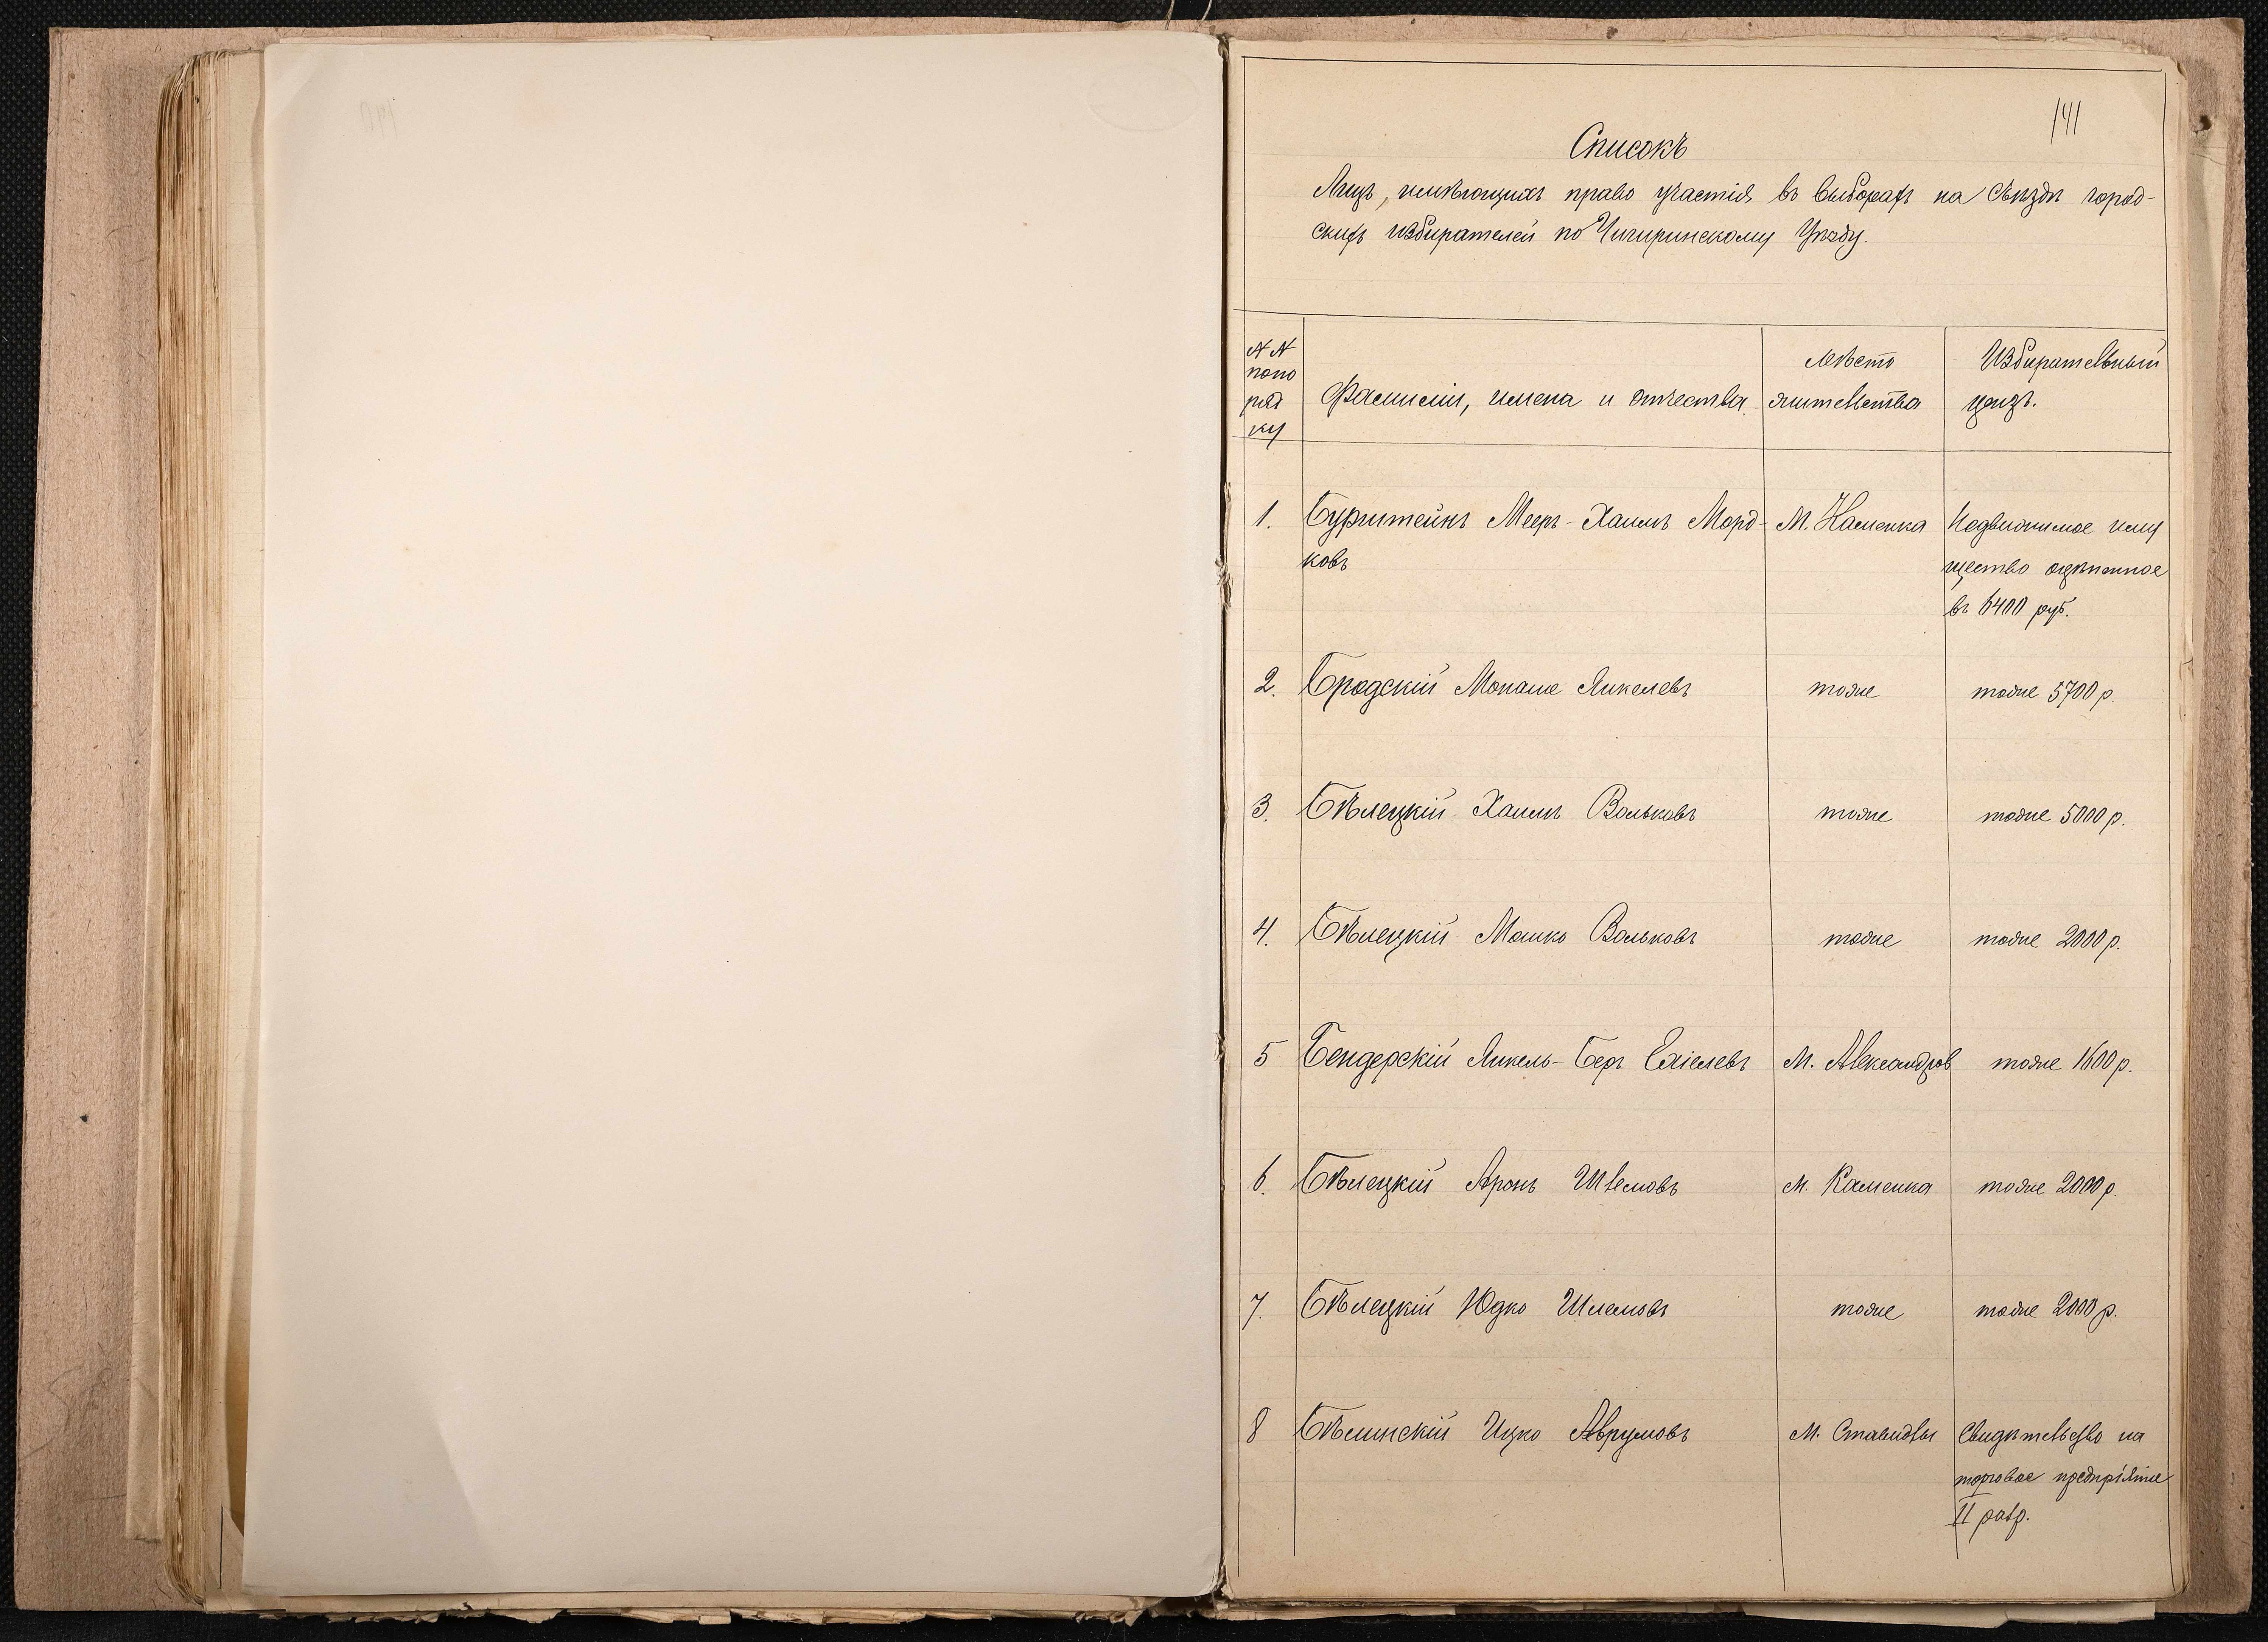 141
Списокъ
Лицъ, имѣющихъ право участія въ выборахъ на съѣздѣ город-
скихъ избирателей по Чигиринскому Уѣзду.
№ №
попо
ряд
ку
Фамиліи, имена и отчества.
Мѣсто
жительства
Избирательный
цензъ.
1. Бурштейнъ Мееръ-Хаимъ Морд- М. Каменка Недвижимое иму
ковъ щество оцѣненное
въ 6400 руб.
2. Бродскій Монаше Янкелевъ тоже тоже 5700 р.
3. Бѣлецкій Хаимъ Вольковъ тоже тоже 5000 р.
4. Бѣлецкій Мошко Вольковъ тоже тоже 2000 р.
5 Бендерскій Янкель-Беръ М. Александров тоже 1600 р.
6. Бѣлецкій Аронъ Шлемовъ М. Каменка тоже 2000 р.
7. Бѣлецкій Юдко Шлемовъ тоже тоже 2000 р.
8 Бѣлинскій Ицко Аврумовъ М. Ставидлы Свидѣтельство на
торговое предпріятіе
II разр.